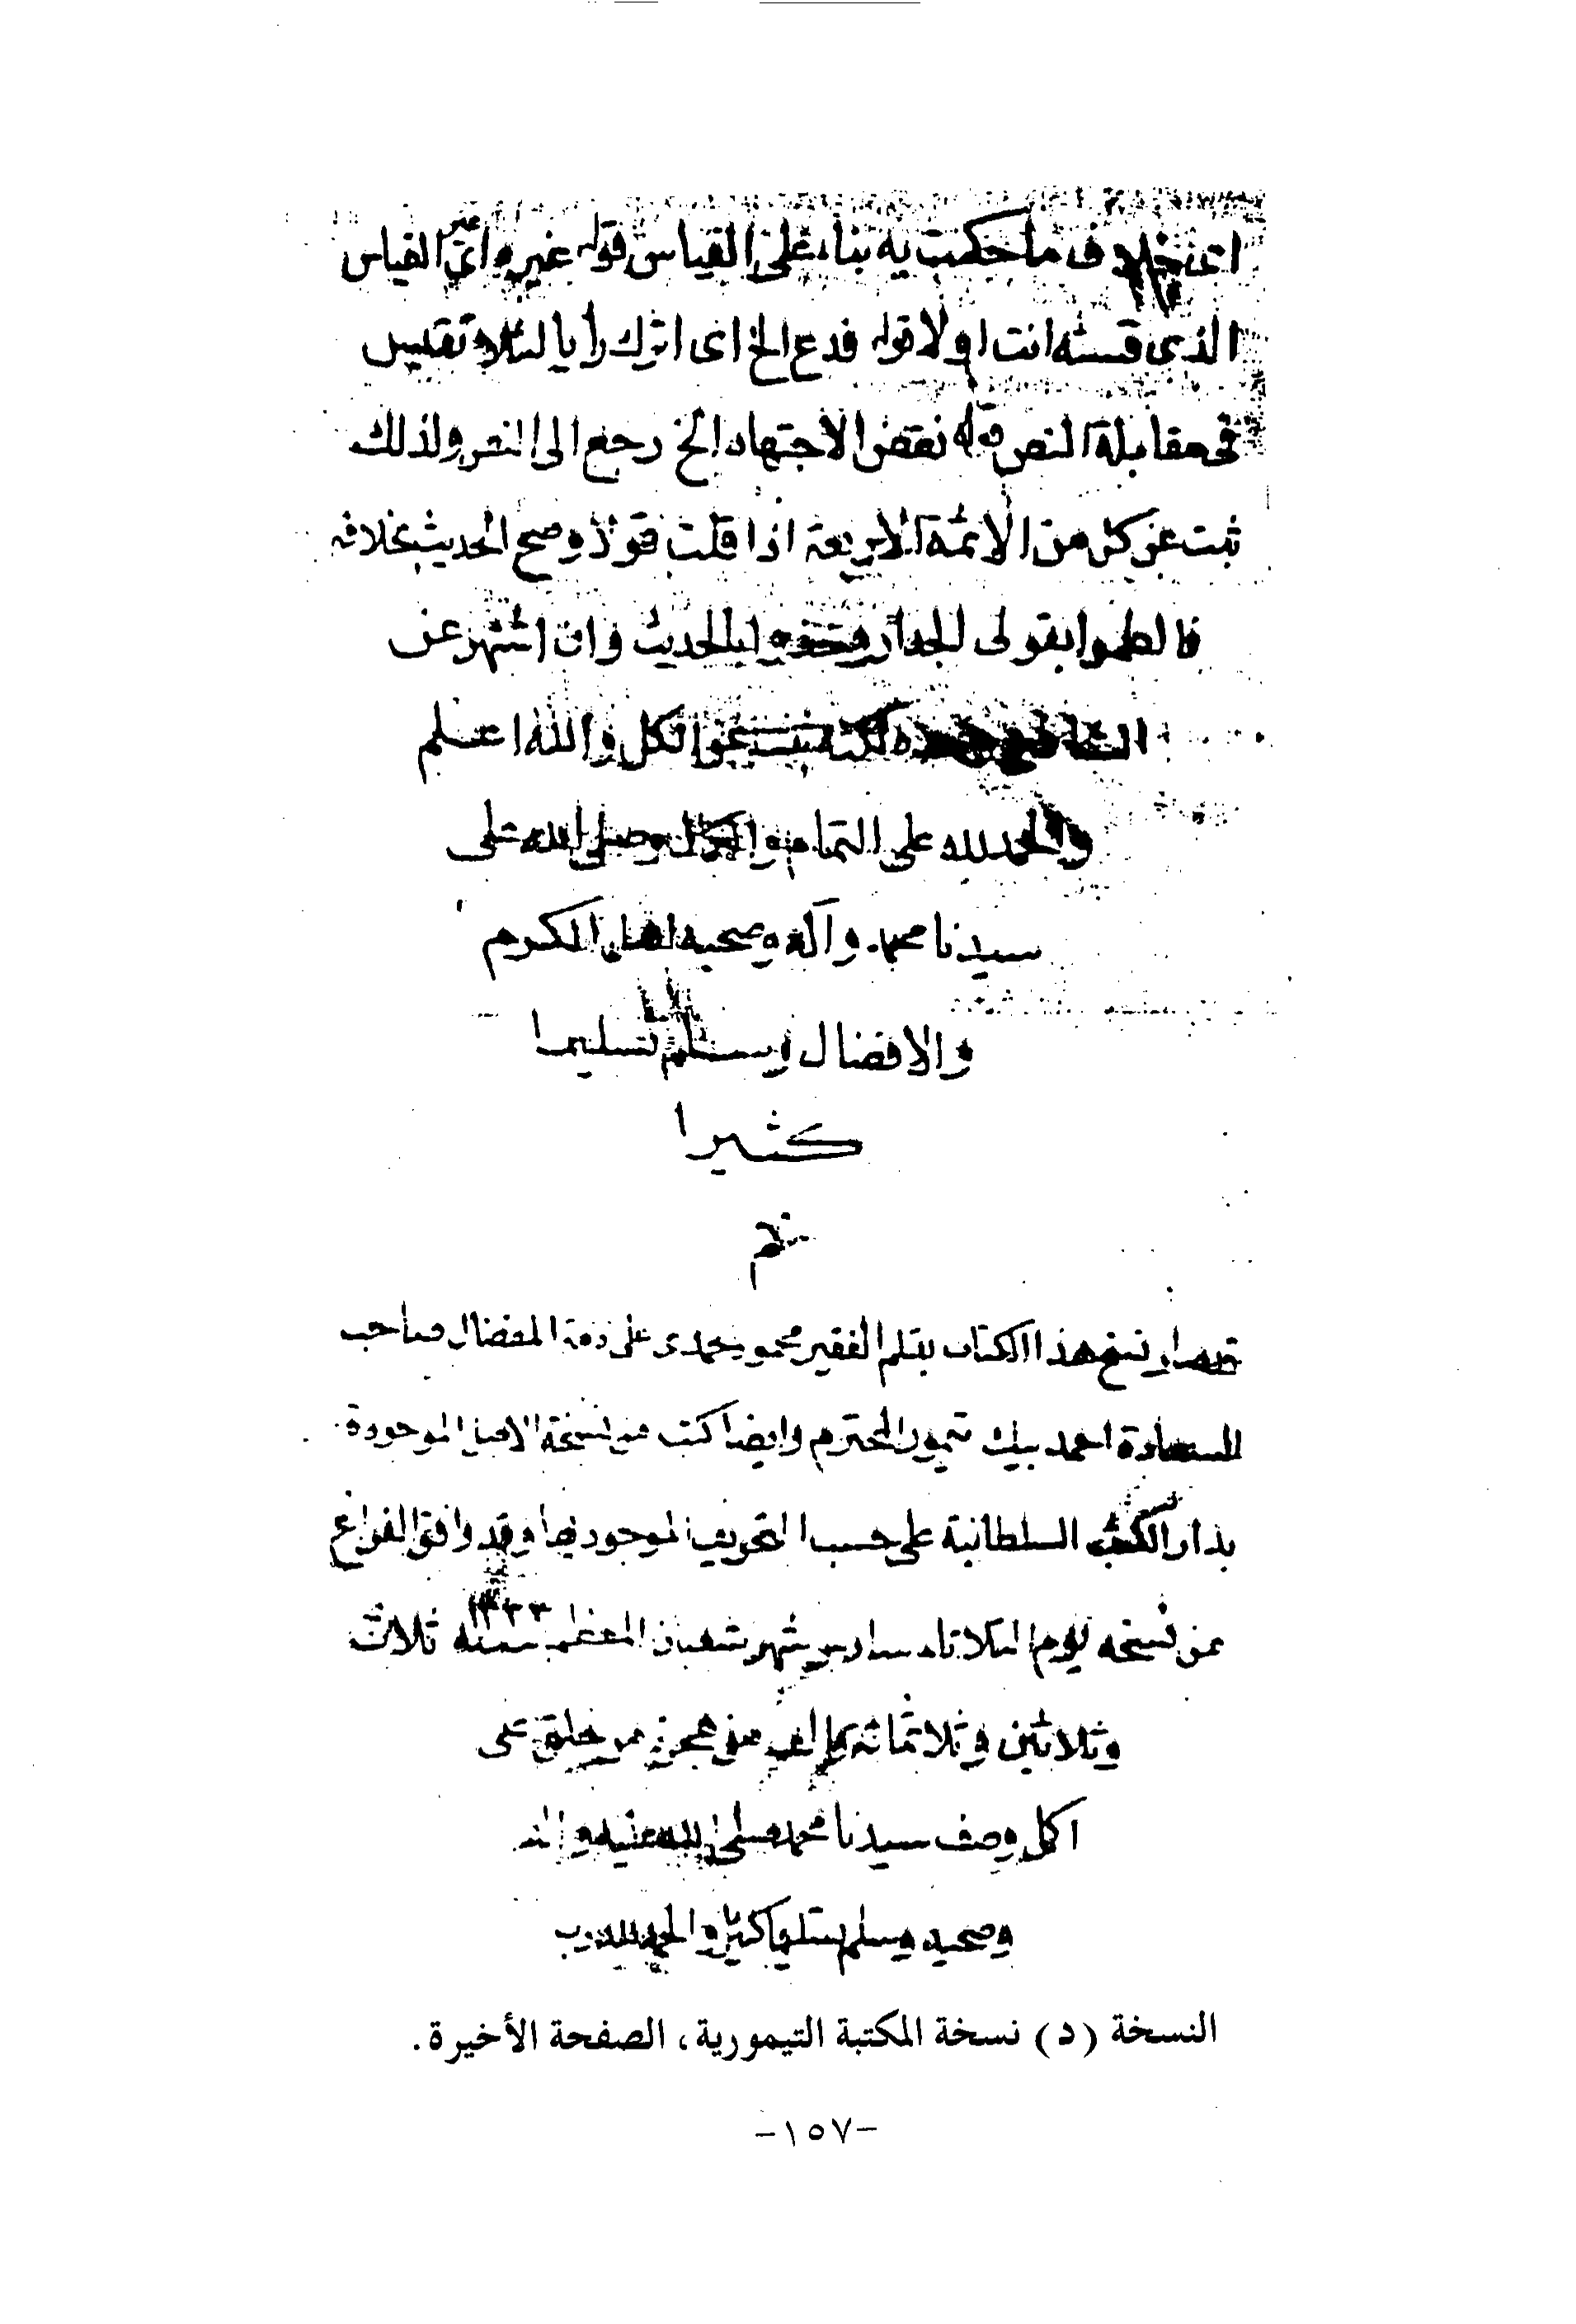 اى خلاف ما حكمت به بناء على القياس قوله غير واى القياس
الذى قسته انت اولا قوله فدع الخ اى اترك رأيا لئلا تقيس
فى مقابلة النص قوله نقض الاجتهاد الخ رجع الى النص ولذلك
ثبت عن كل من الائمة الاربعة اذا قلت قولا وصح الحديث بخلافه
فالطموا بقولى الجدار بالحديث وان اشتهر عن
لكنه الكل والله اعلم
والحمد لله على التمام والكمال وصلى الله على
سيدنا محمد وآله وصحبه اهل الكرم
والافضال وسلم تسليما
كثيرا
تم
نسخ هذا الكتاب بقلم الفقير محمود حمدى على ذمة المفضال صاحب
السعادة احمد بيك تيمور المحترم وايضا كتب من نسخة الاصل الموجودة
بدار الكتب السلطانية على حسب التحريف الموجود بها وقد وافق الفراغ
من نسخه يوم الثلاثاء سادس شهر شعبان المعظم سنة ١٣٣٣ ثلاث
وثلاثين وثلاثمائة بعد الف من هجرة من خلق على
اكمل وصف سيدنا محمد صلى الله عليه وآله
وصحبه وسلم تسليما كثيرا والحمد لله رب
النسخة (د) نسخة المكتبة التيمورية، الصفحة الأخيرة.
-١٥٧-